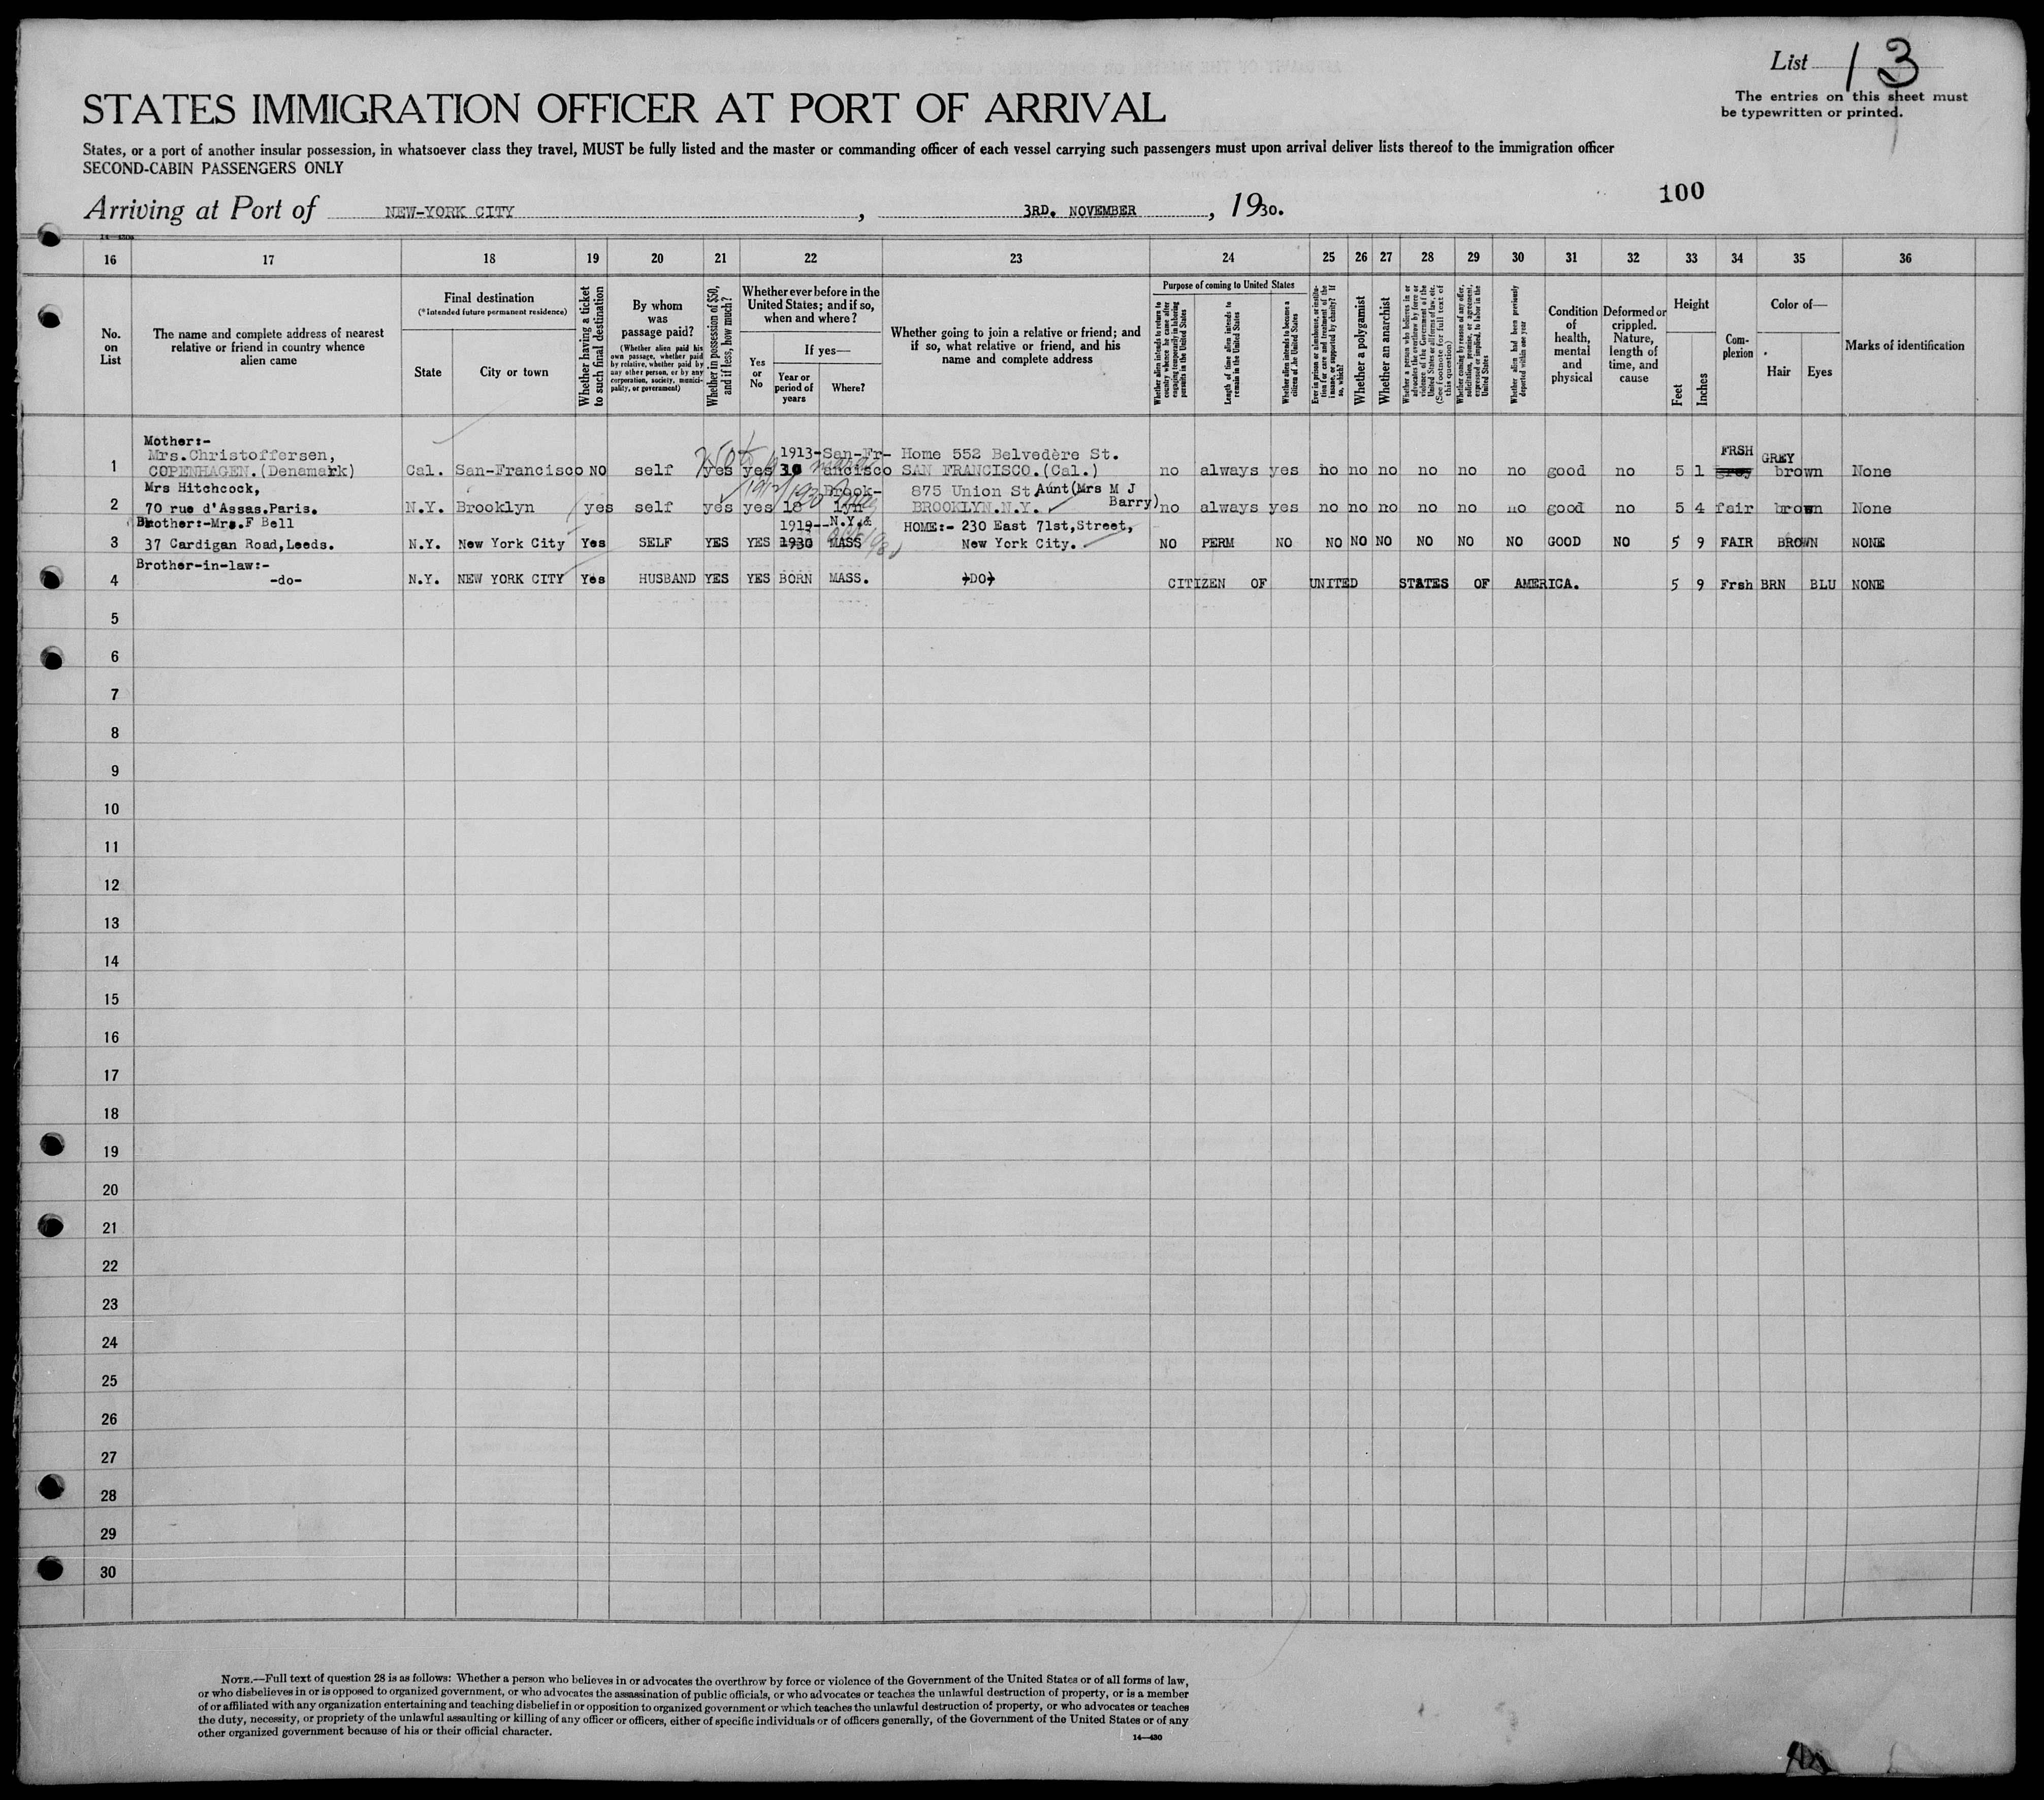 List 13
The entries on this sheet must
be typewritten or printed.
STATES IMMIGRATION OFFICER AT PORT OF ARRIVAL
States, or a port of another insular possession, in whatsoever class they travel, MUST be fully listed and the master or commanding officer of each vessel carrying such passengers must upon arrival deliver lists thereof to the immigration officer
SECOND-CABIN PASSENGERS ONLY
100
Arriving at Port of NEW-YORK CITY, 3RD. NOVEMBER, 1930.
16 17 18 19 20 21 22 23 24 25 26 27 28 29 30 31 32 33 34 35 36
No. on List
The name and complete address of nearest relative or friend in country whence alien came
Final destination
(*Intended future permanent residence)
State
City or town
Whether having a ticket to such final destination
By whom was passage paid?
(Whether alien paid his own passage, whether paid by relative, whether paid by any other person, or by any corporation, society, municipality, or government)
Whether in possession of $50, and if less, how much?
Whether ever before in the United States; and if so, when and where?
Yes or No
If yes—
Year or period of years
Where?
Whether going to join a relative or friend; and if so, what relative or friend, and his name and complete address
Purpose of coming to United States
Whether alien intends to return to country whence he came after engaging temporarily in laboring pursuits in the United States
Length of time alien intends to remain in the United States
Whether alien intends to become a citizen of the United States
Ever in prison or almshouse, or institution for care and treatment of the insane, or supported by charity? If so, which?
Whether a polygamist
Whether an anarchist
Whether a person who believes in or advocates the overthrow by force or violence of the Government of the United States or all forms of law, etc. (See footnote for full text of this question)
Whether coming by reason of any offer, solicitation, promise, or agreement, expressed or implied, to labor in the United States
Whether alien had been previously deported within one year
Condition of health, mental and physical
Deformed or crippled. Nature, length of time, and cause
Height
Feet
Inches
Complexion
Color of—
Hair
Eyes
Marks of identification
Mother:-
1 Mrs.Christoffersen, 1913- San-Fr- Home 552 Belvedère St. FRSH GREY
COPENHAGEN.(Denamark) Cal. San-Francisco NO self yes yes 30 ancisco SAN FRANCISCO.(Cal.) no always yes no no no no no no good no 5 1 grey brown None
Mrs Hitchcock, Brook- 875 Union St. Aunt(Mrs M J Barry)
2 70 rue d'Assas.Paris. N.Y. Brooklyn yes self yes yes 18 lyn BROOKLYN.N.Y. no always yes no no no no no no good no 5 4 fair brown None
Brother:-Mr.F Bell 1919-- N.Y.& HOME:- 230 East 71st,Street,
3 37 Cardigan Road,Leeds. N.Y. New York City Yes SELF YES YES 1930 MASS New York City. NO PERM NO NO NO NO NO NO NO GOOD NO 5 9 FAIR BROWN NONE
Brother-in-law:-
4 -do- N.Y. NEW YORK CITY Yes HUSBAND YES YES BORN MASS. -DO- CITIZEN OF UNITED STATES OF AMERICA. 5 9 Frsh BRN BLU NONE
5
6
7
8
9
10
11
12
13
14
15
16
17
18
19
20
21
22
23
24
25
26
27
28
29
30
NOTE.—Full text of question 28 is as follows: Whether a person who believes in or advocates the overthrow by force or violence of the Government of the United States or of all forms of law,
or who disbelieves in or is opposed to organized government, or who advocates the assassination of public officials, or who advocates or teaches the unlawful destruction of property, or is a member
of or affiliated with any organization entertaining and teaching disbelief in or opposition to organized government or which teaches the unlawful destruction of property, or who advocates or teaches
the duty, necessity, or propriety of the unlawful assaulting or killing of any officer or officers, either of specific individuals or of officers generally, of the Government of the United States or of any
other organized government because of his or their official character.
14—430